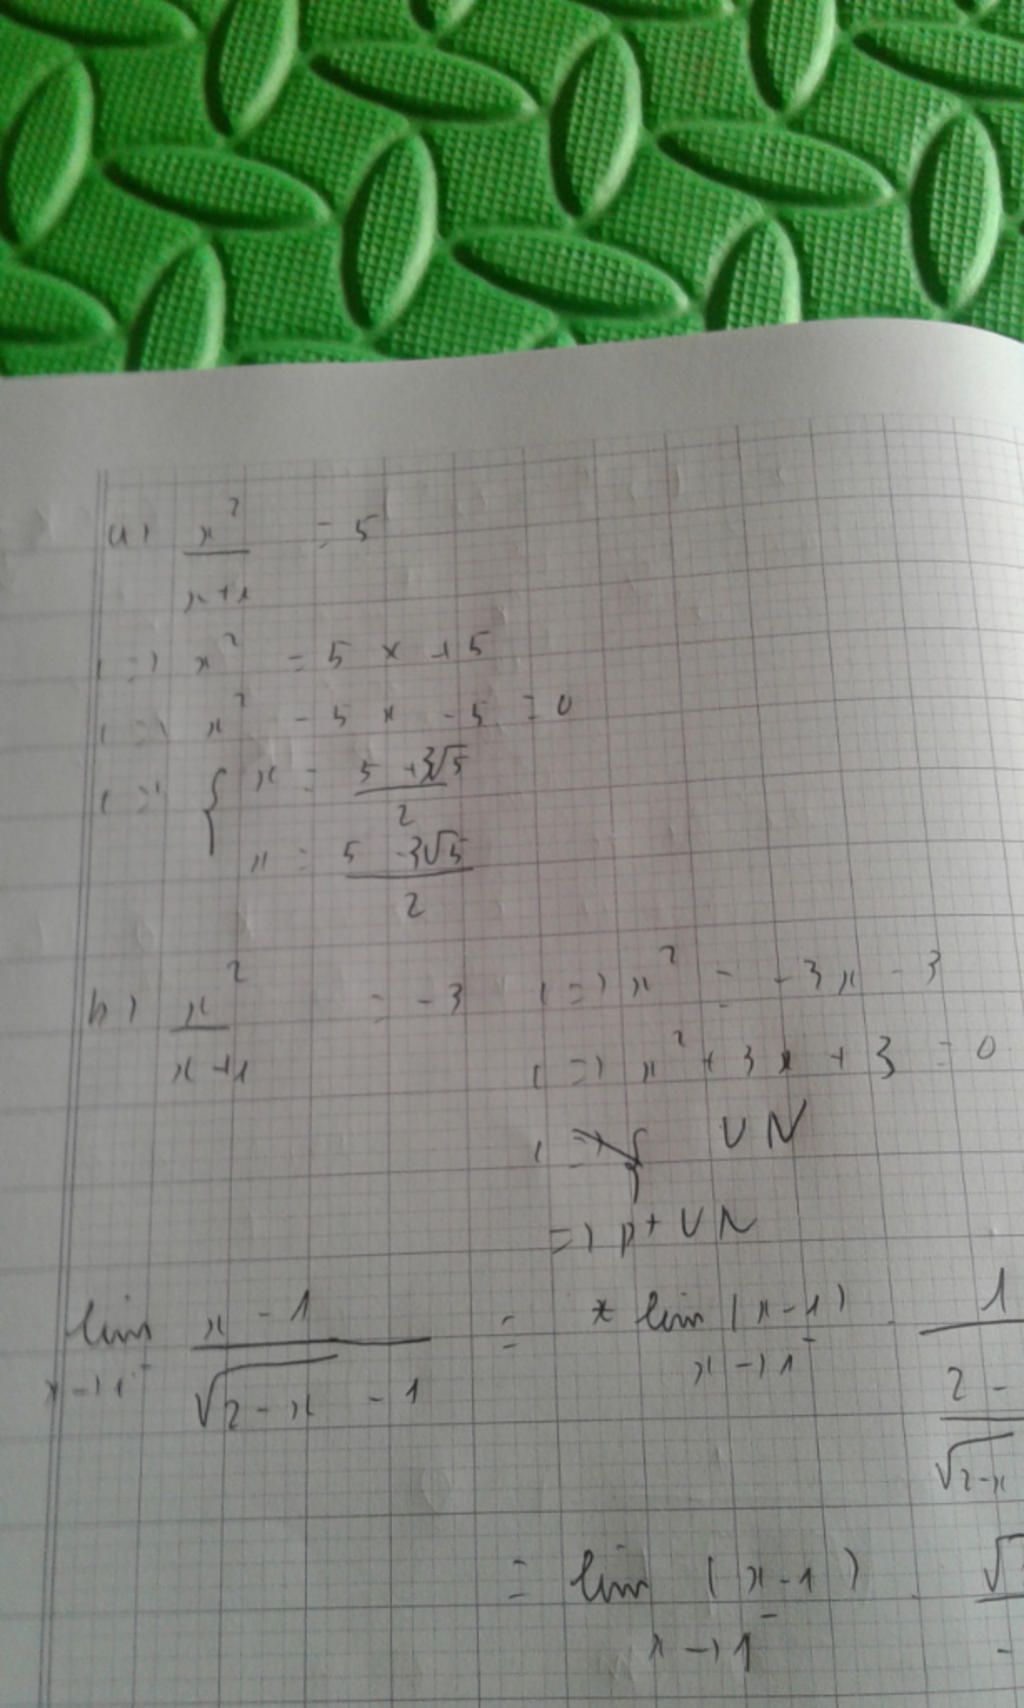 a) x² / (x+1) = 5
<=> x² = 5x + 5
<=> x² - 5x - 5 = 0
<=> { x = (5 + 3√5) / 2
x = (5 - 3√5) / 2
b) x² / (x+1) = -3 <=> x² = -3x - 3
<=> x² + 3x + 3 = 0
<=> VN
=> pt VN
lim x->1⁻ (x - 1) / (√(2-x) - 1) = * lim x->1⁻ (x-1) . 1 / (2 - / √(2-x
= lim x->1⁻ (x-1) . √